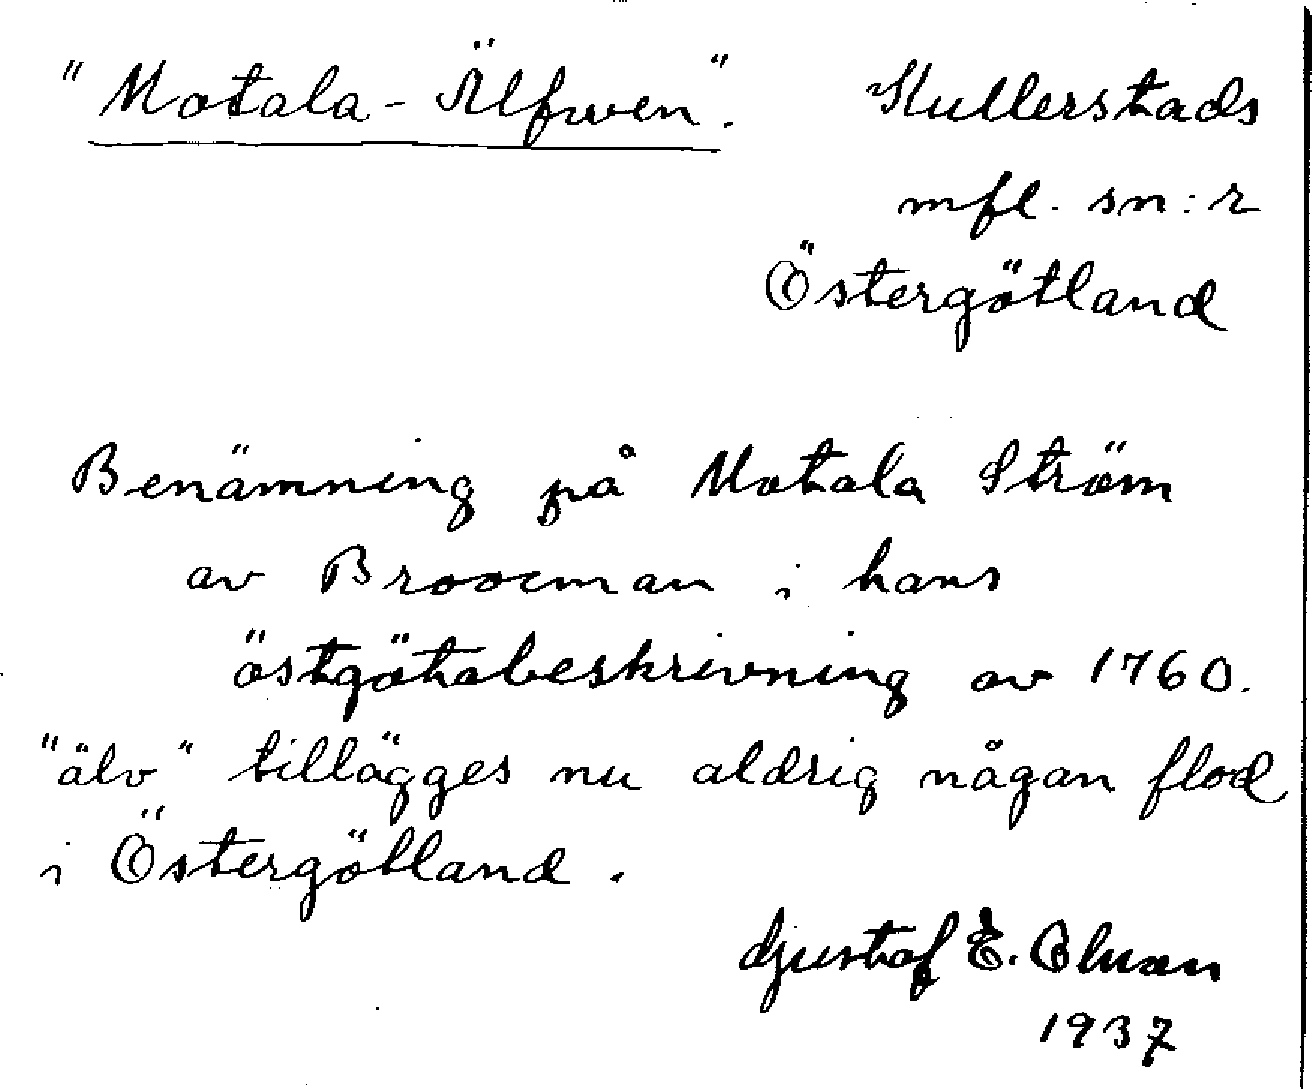 "Motala-Älfwen".
Kullerstads
mfl. sn:r
Östergötland
Benämning på Motala Ström
av Broocman i hans
östgötabeskrivning av 1760.
"älv" tillägges nu aldrig någan flod
i Östergötland.
Gustaf E. Olsson
1937